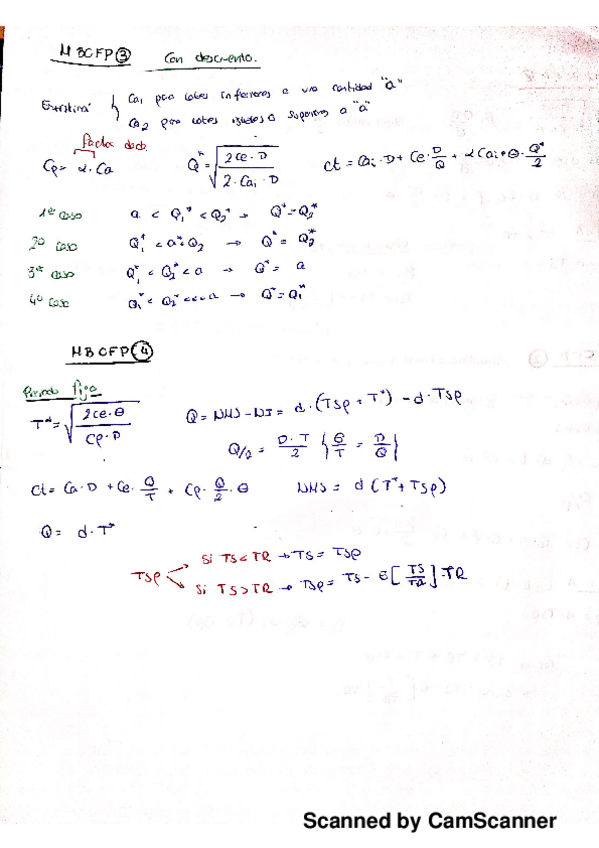 MBCFP ③ Con descuento.
Existirá { Ca1 para lotes inferiores a una cantidad "a"
Ca2 para lotes iguales o superiores a "a"
Cp = α·Ca
Q* = √(2Ce·D / 2·Cai·D)
Ct = Cai·D + Ce·D/Q + αCai·θ·Q*/2
1er caso a < Q1* < Q2* → Q* = Q2*
2º caso Q1* < a < Q2 → Q* = Q2*
3er caso Q1* < Q2* < a → Q* = a
4º caso Q1* < Q2* <<< a → Q* = Q1*
MBCFP ④
Periodo fijo
T* = √(2Ce·θ / Cp·D)
Q = NMS - NI = d·(TSp + T*) - d·TSp
Q/2 = D·T/2 { θ/T = D/Q }
Ct = Ca·D + Ce·θ/T + Cp·Q/2·θ
NMS = d(T* + TSp)
Q = d·T*
TSp
Si TS < TR → TS = TSp
Si TS > TR → TSp = TS - E[TS/TR]·TR
Scanned by CamScanner